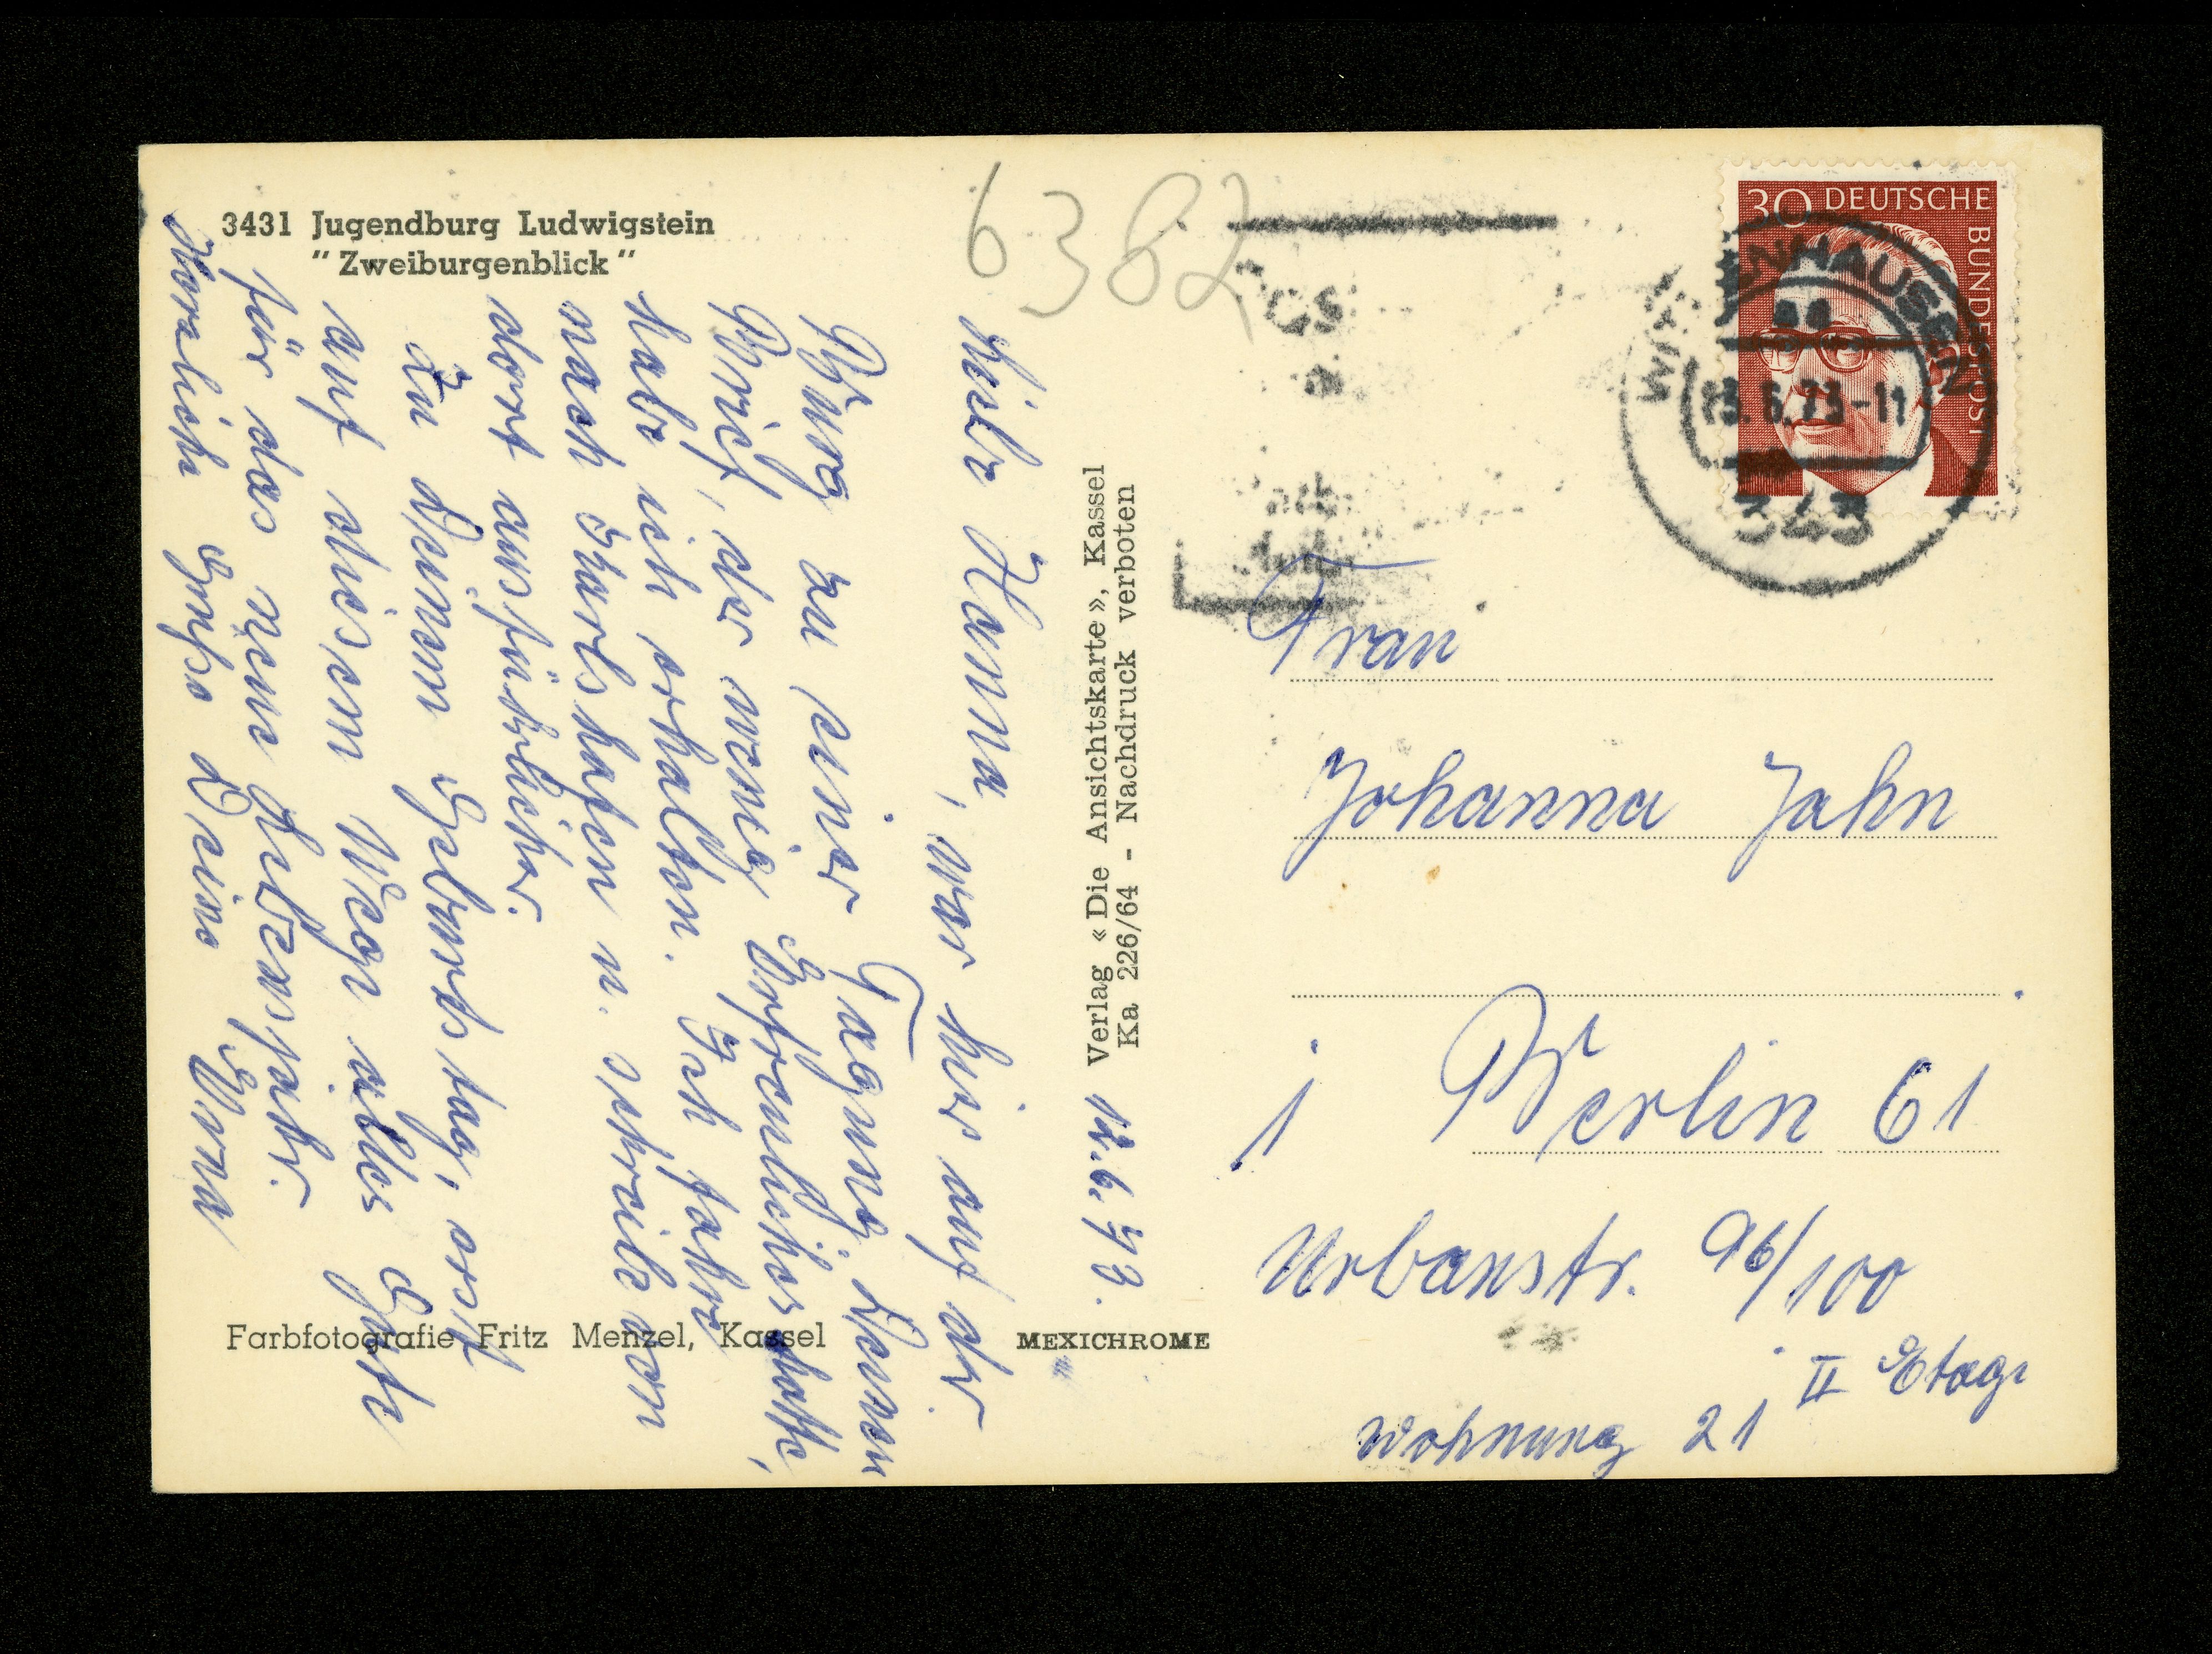 3431 Jugendburg Ludwigstein
"Zweiburgenblick"
6382
30 DEUTSCHE BUNDESPOST
WITZENHAUSEN
13.6.73-11
343
12.6.73.
Liebe Hanna, war hier auf der
Burg zu einer Tagung. Deinen
Brief, der wenig Erfreuliches hatte,
habe ich erhalten. Ich fahre
nach Karlshafen u. schreibe von
dort ausführlicher.
Zu Deinem Geburtstag, erst
auf diesem Wege alles Gute
für das neue Lebensjahr.
Herzliche Grüße Deine Erna
Verlag «Die Ansichtskarte», Kassel
Ka 226/64 - Nachdruck verboten
Frau
Johanna Jahn
1 Berlin 61
Urbanstr. 96/100
II Etage
Wohnung 21
Farbfotografie Fritz Menzel, Kassel
MEXICHROME